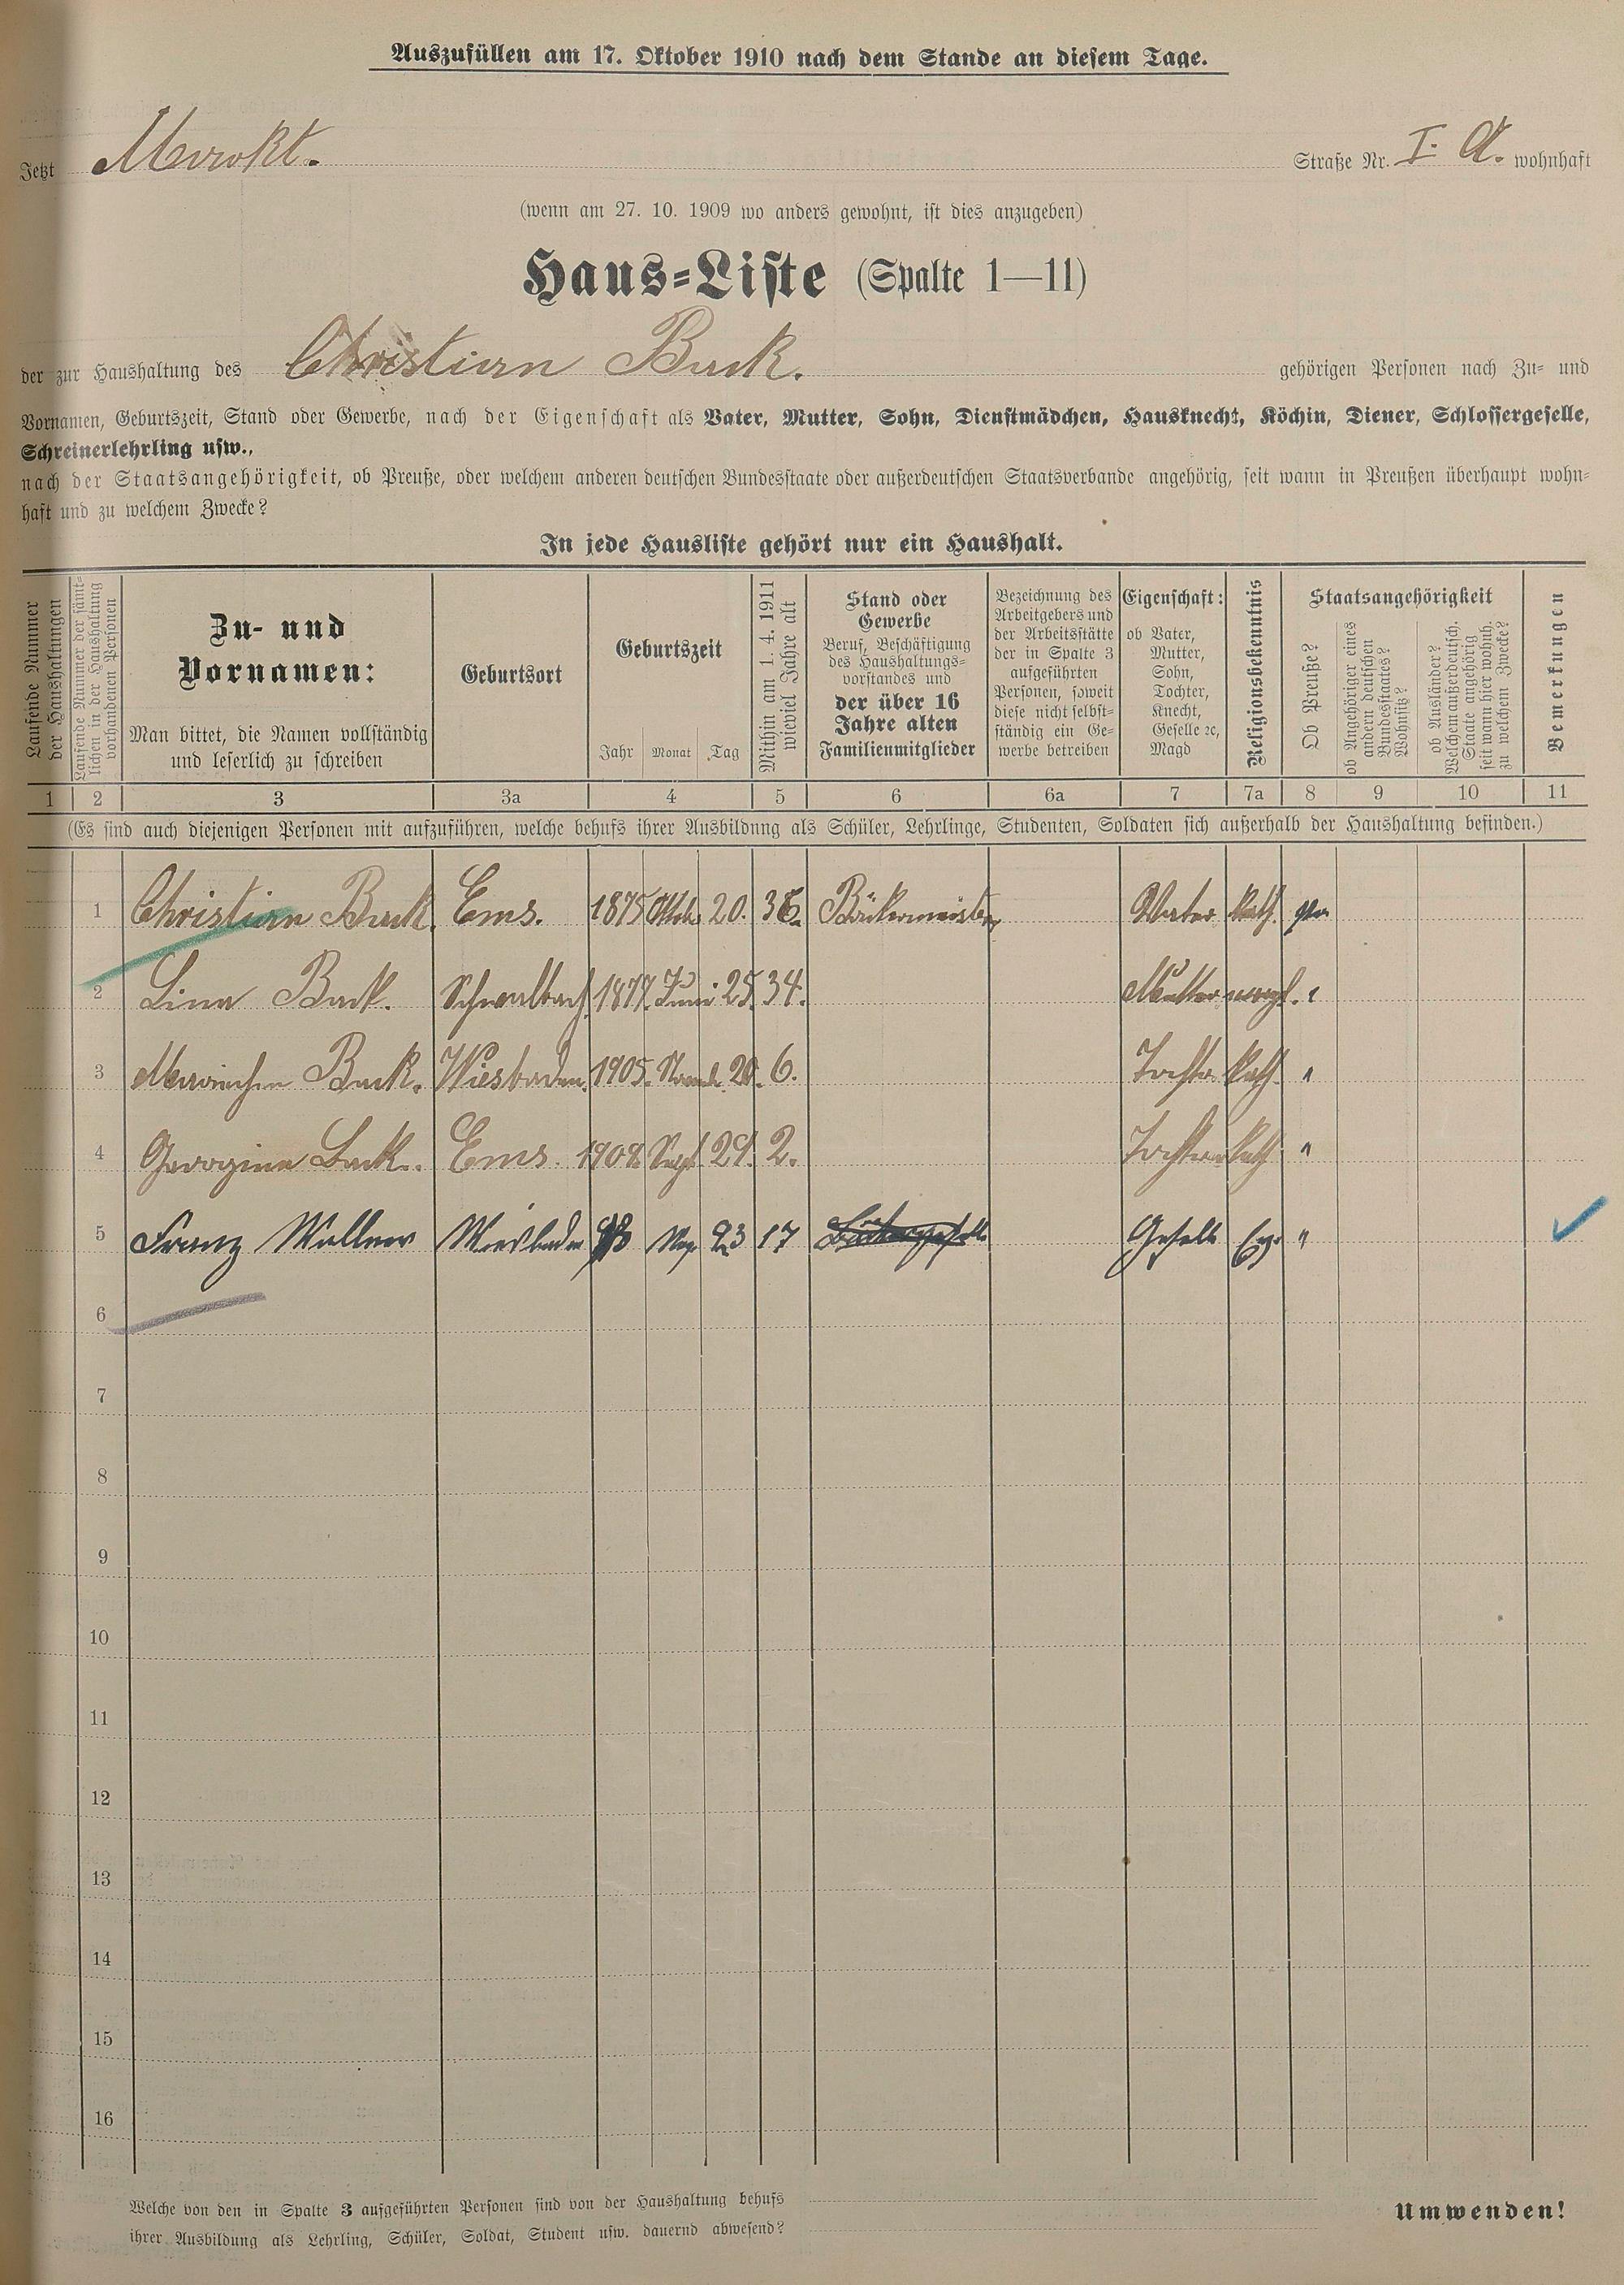 Auszufüllen am 17. Oktober 1910 nach dem Stande an diesem Tage.
Jetzt Markt. Straße Nr. I. A. wohnhaft
(wenn am 27. 10. 1909 wo anders gewohnt, ist dies anzugeben)
Haus-Liste (Spalte 1—11)
der zur Haushaltung des Christian Buck. gehörigen Personen nach Zu- und
Vornamen, Geburtszeit, Stand oder Gewerbe, nach der Eigenschaft als Vater, Mutter, Sohn, Dienstmädchen, Hausknecht, Köchin, Diener, Schlossergeselle,
Schreinerlehrling usw.,
nach der Staatsangehörigkeit, ob Preuße, oder welchem anderen deutschen Bundesstaate oder außerdeutschen Staatsverbande angehörig, seit wann in Preußen überhaupt wohn-
haft und zu welchem Zwecke?
In jede Hausliste gehört nur ein Haushalt.
Laufende Nummer
der Haushaltungen
Laufende Nummer der sämt-
lichen in der Haushaltung
vorhandenen Personen
Zu- und
Vornamen:
Man bittet, die Namen vollständig
und leserlich zu schreiben
Geburtsort
Geburtszeit
Jahr Monat Tag
Mithin am 1. 4. 1911
wieviel Jahre alt
Stand oder
Gewerbe
Beruf, Beschäftigung
des Haushaltungs-
vorstandes und
der über 16
Jahre alten
Familienmitglieder
Bezeichnung des
Arbeitgebers und
der Arbeitsstätte
der in Spalte 3
aufgeführten
Personen, soweit
diese nicht selbst-
ständig ein Ge-
werbe betreiben
Eigenschaft:
ob Vater,
Mutter,
Sohn,
Tochter,
Knecht,
Geselle ꝛc,
Magd
Religionsbekenntnis
Staatsangehörigkeit
Ob Preuße?
ob Angehöriger eines
andern deutschen
Bundesstaates?
Wohnsitz?
ob Ausländer?
Welchem außerdeutsch.
Staate angehörig
seit wann hier wohnh.
zu welchem Zwecke?
Bemerkungen
1 2 3 3a 4 5 6 6a 7 7a 8 9 10 11
(Es sind auch diejenigen Personen mit aufzuführen, welche behufs ihrer Ausbildung als Schüler, Lehrlinge, Studenten, Soldaten sich außerhalb der Haushaltung befinden.)
1 Christian Buck Ems. 1875 20. Bäckermeister Vater kath.
2 Lina Buck. Schwalbach 1877. Juni 25. 34. Mutter evangl.
3 Mariechen Buck. Wiesbaden. 1905. 20. 6. Tochter kath. "
4 Georgina Buck. Ems. Sept. 29. 2. Tochter kath "
5 Franz Wiesbaden 23 17 Bäckergeselle Geselle "
6
7
8
9
10
11
12
13
14
15
16
Welche von den in Spalte 3 aufgeführten Personen sind von der Haushaltung behufs
ihrer Ausbildung als Lehrling, Schüler, Soldat, Student usw. dauernd abwesend?
Umwenden!